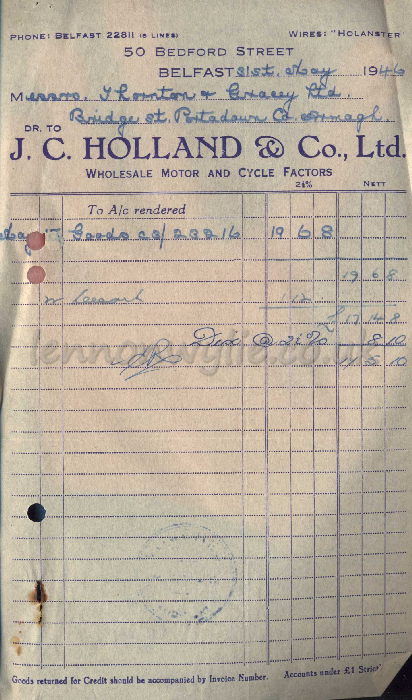 PHONE: BELFAST 22811 (5 LINES) WIRES: "HOLANSTER"
50 BEDFORD STREET
BELFAST 31st. May 1946
Messrs. Thornton & Gracey Ltd.
Bridge St. Portadown Co. Armagh.
DR. TO
J. C. HOLLAND & Co., Ltd.
WHOLESALE MOTOR AND CYCLE FACTORS
2½% NETT
To A/c rendered
May 17 Goods as/23216 19 6 8
19 6 8
1 12
£ 17 14 8
Disc @ 2½% 8 10
5 10
Goods returned for Credit should be accompanied by Invoice Number. Accounts under £1 Strict